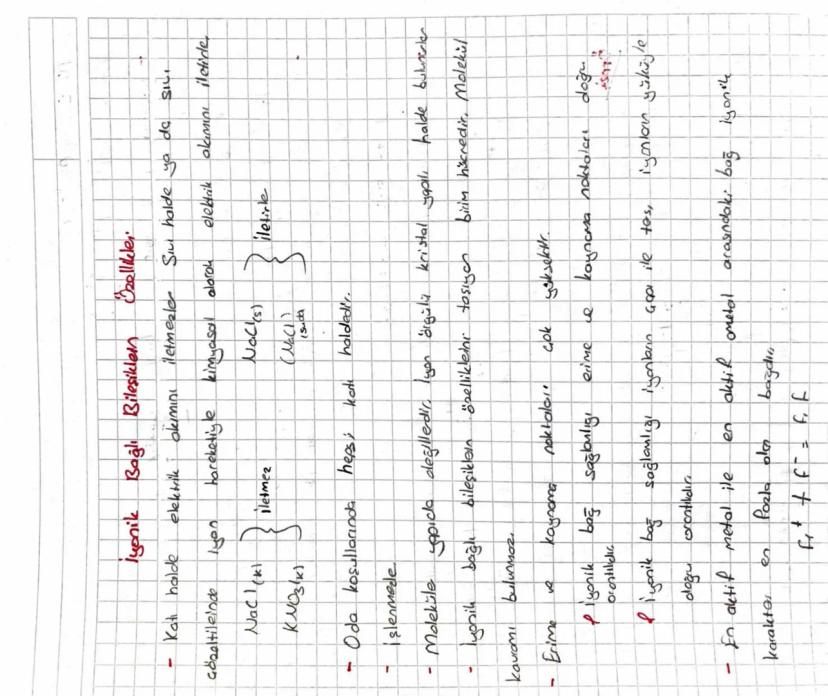 İyonik Bağlı Bileşiklerin Özellikleri
- Katı halde elektrik akımını iletmezler Sıvı halde ya da sulu
çözeltilerinde iyon hareketiyle kimyasal olarak elektrik akımını iletirler.
NaCl(k) } iletmez NaCl(s) } iletirler
KNO3(k) (NaCl)
- Oda koşullarında hepsi katı haldedir.
- İşlenmezler
- Moleküler yapıda değillerdir. İyon örgülü kristal yapılı halde bulunurlar
- İyonik bağlı bileşiklerin özelliklerini taşıyan birim hücredir. Molekül
kavramı bulunmaz.
- Erime ve kaynama noktaları çok yüksektir.
İyonik bağ sağlamlığı erime ve kaynama noktaları doğru
orantılıdır.
İyonik bağ sağlamlığı iyonların çapı ile ters, iyonların yüküyle
doğru orantılıdır.
- En aktif metal ile en aktif ametal arasındaki bağ iyonik
karakteri en fazla olan bağdır.
Fr+ + F- = Fr F